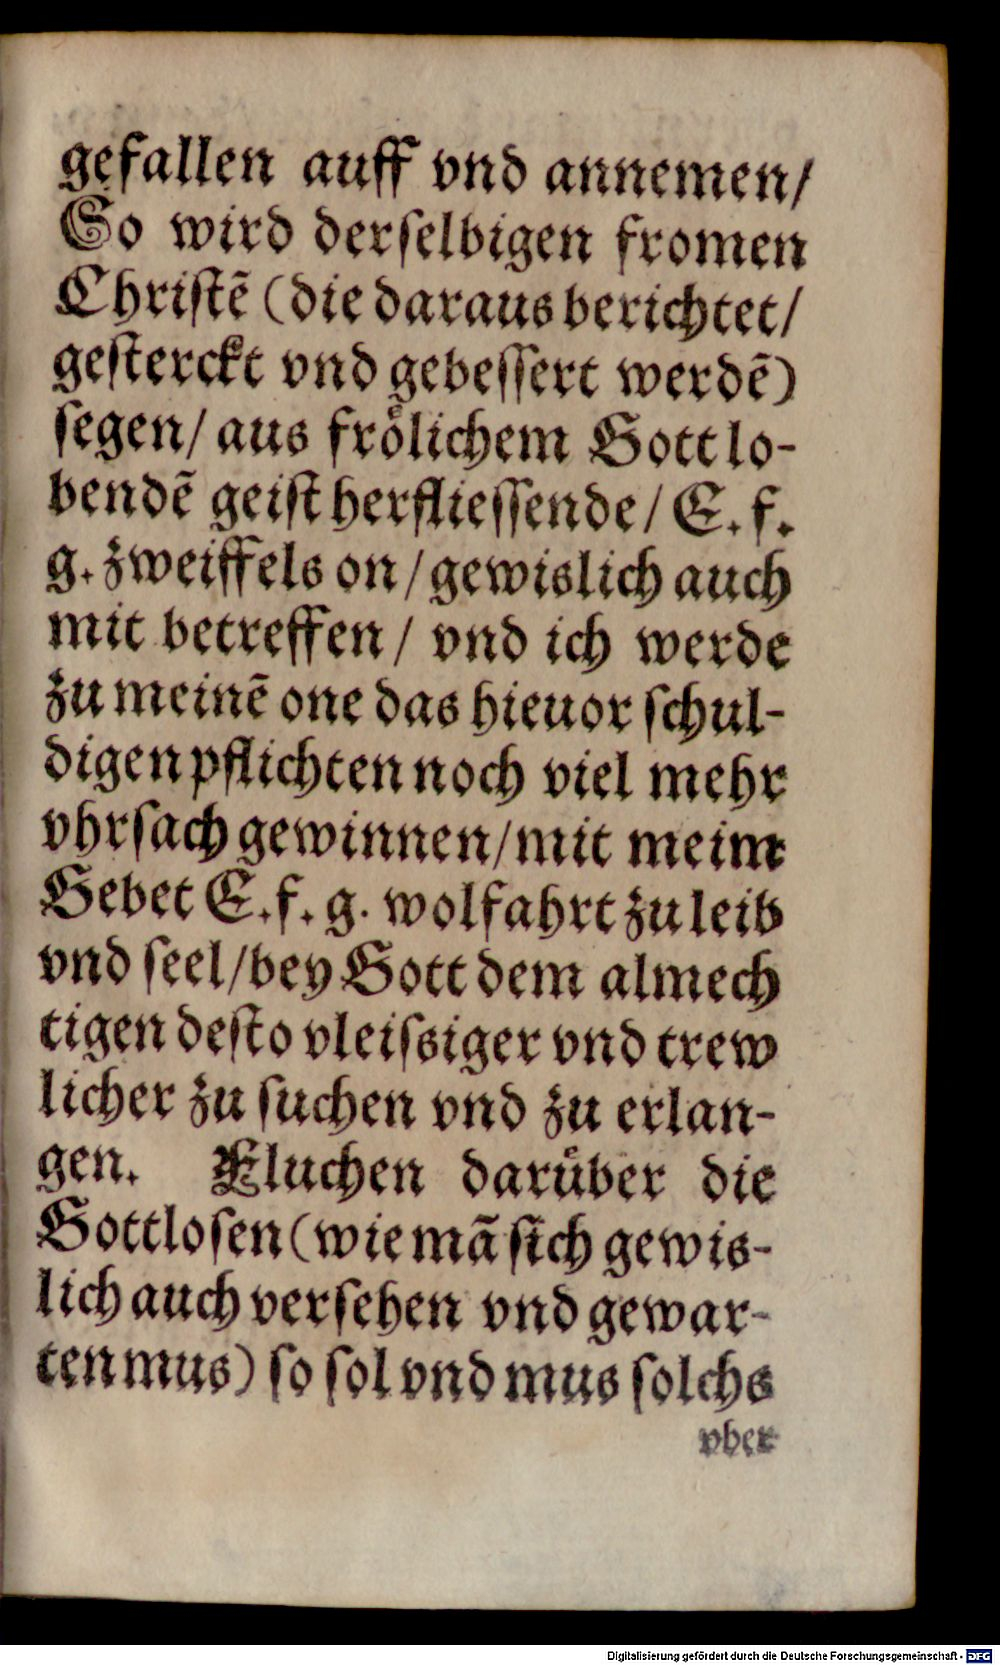 gefallen auff vnd annemen/
So wird derſelbigen fromen
Chriſtẽ (die daraus berichtet/
geſterckt vnd gebeſſert werdẽ)
ſegen/ aus froͤlichem Gott lo-
bendẽ geiſt herflieſſende/ E. f.
g. zweiffels on/ gewislich auch
mit betreffen/ vnd ich werde
zu meinẽ one das hieuor ſchul-
digen pflichten noch viel mehr
vhrſach gewinnen/ mit meim
Gebet E. f. g. wolfahrt zu leib
vnd ſeel/ bey Gott dem almech
tigen deſto vleiſsiger vnd trew
licher zu ſuchen vnd zu erlan-
gen. Fluchen daruͤber die
Gottloſen (wie mã ſich gewis-
lich auch verſehen vnd gewar-
ten mus) ſo ſol vnd mus ſolchs
vber
Digitalisierung gefördert durch die Deutsche Forschungsgemeinschaft - DFG